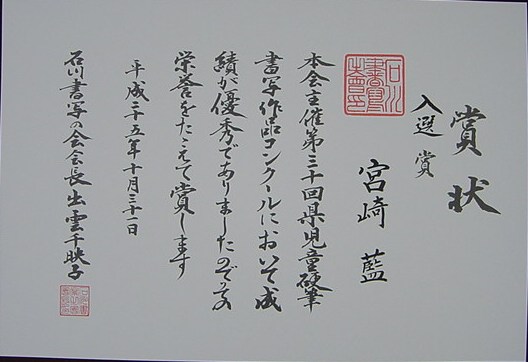 賞状
入選賞
宮崎藍
本会主催第三十回県児童硬筆
書写作品コンクールにおいて成
績が優秀でありましたのでその
栄誉をたたえて賞します
平成二十五年十月三十一日
石川書写の会会長出雲千映子